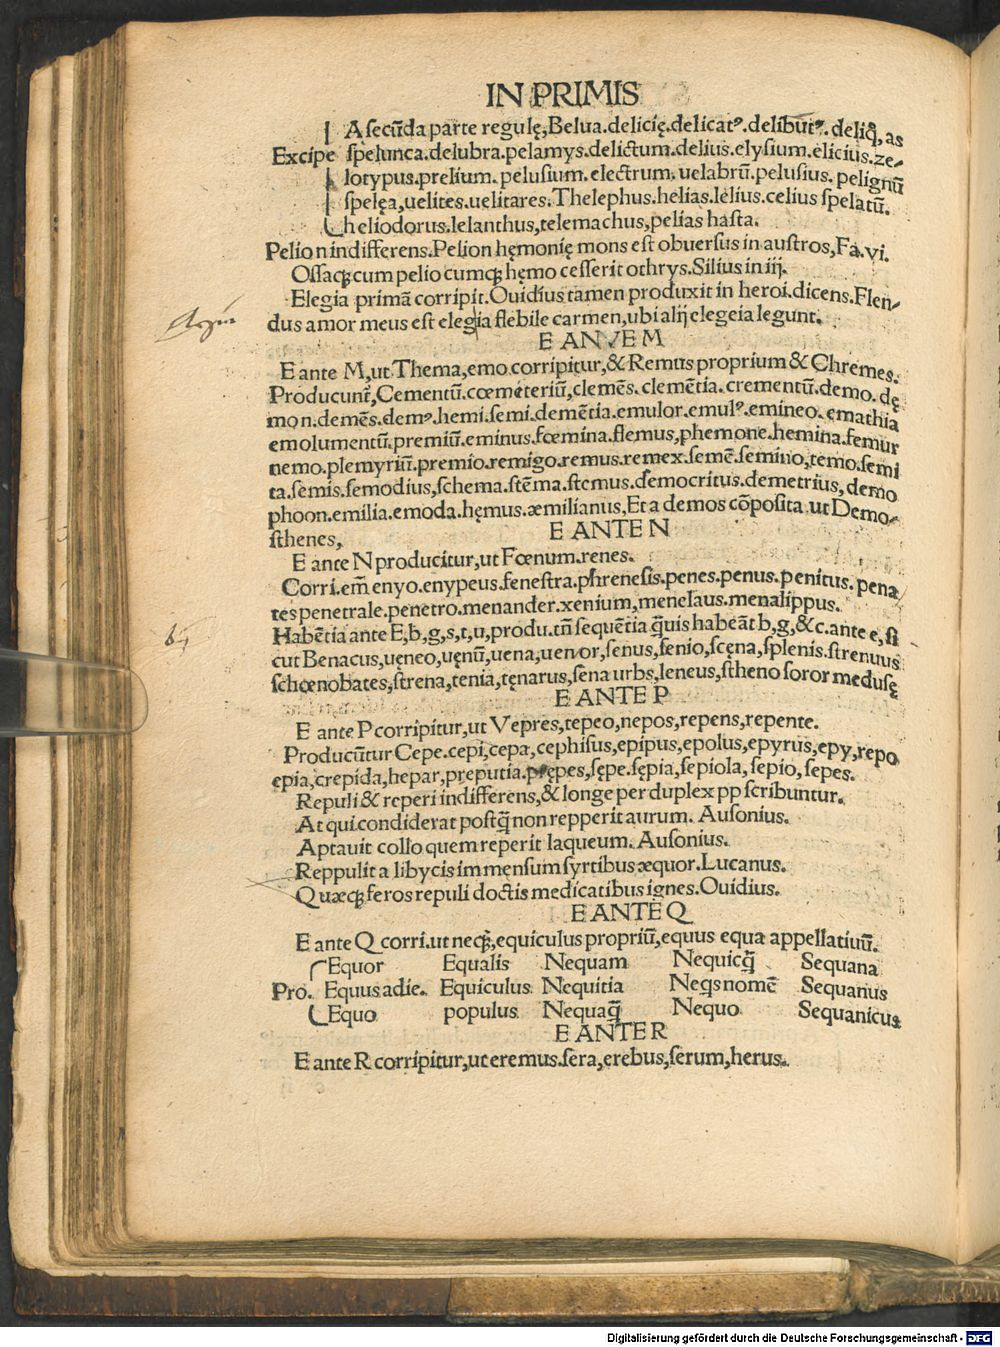 IN PRIMIS
A secūda parte regulę, Belua. delicię. delicatꝰ. delibutꝰ. deliq̄, as
Excipe spelunca. delubra. pelamys. delictum. delius. elysium. elicius. ze-
lotypus. prelium. pelusium. electrum. uelabrū. pelusius. pelignū
spelęa, uelites. uelitares. Thelephus. helias. lelius. celius spelatū.
heliodorus. lelanthus, telemachus, pelias hasta.
Pelion indifferens. Pelion hęmonię mons est obuersus in austros, Fa. vi.
Ossaqꝫ cum pelio cumqꝫ hęmo cesserit othrys. Silius in iij.
Elegia primā corripit. Ouidius tamen produxit in heroi. dicens. Flen-
dus amor meus est elegia flebile carmen, ubi alij elegeia legunt.
E ANTE M
E ante M, ut Thema, emo corripitur, & Remus proprium & Chremes.
Producunt̄, Cementū. cœmeteriū, clemēs. clemētia. crementū. demo. dę
mon. demēs. demꝰ. hemi. semi. demētia. emulor. emulꝰ. emineo. emathia
emolumentū. premiū. eminus. fœmina. flemus, phemone. hemina. femur
nemo. plemyriū. premio. remigo. remus. remex. semē. semino, temo. semi
ta. semis. semodius, schema. stēma. stemus. democritus. demetrius, demo
phoon. emilia. emoda. hęmus. æmilianus, Et a demos cōposita ut Demo-
sthenes,
E ANTE N
E ante N producitur, ut Fœnum. renes.
Corri. em̄ enyo. enypeus. fenestra. phrenesis. penes. penus. penitus. pena
tes penetrale. penetro. menander. xenium, menelaus. menalippus.
Habētia ante E, b, g, s, t, u, produ. tn̄ sequētia q̄uis habeāt b, g, & c. ante e, si
cut Benacus, uęneo, uęnū, uena, uenor, senus, senio, scęna, splenis. strenuus
schœnobates, strena, tenia, tęnarus, sena urbs, leneus, stheno soror medusę
E ANTE P
E ante P corripitur, ut Vepres, tepeo, nepos, repens, repente.
Producūtur Cepe. cepi, cepa, cephisus, epipus, epolus, epyrus, epy, repo
epia, crepida, hepar, preputia. prępes, sępe. sępia, sepiola, sepio, sepes.
Repuli & reperi indifferens, & longe per duplex pp scribuntur.
At qui condiderat postq̄ non repperit aurum. Ausonius.
Aptauit collo quem reperit laqueum. Ausonius.
Reppulit a libycis immęnsum syrtibus æquor. Lucanus.
Quæqꝫ feros repuli doctis medicatibus ignes. Ouidius.
E ANTE Q
E ante Q corri. ut neqꝫ, equiculus propriū, equus equa appellatiuū.
Equor Equalis Nequam Nequicq̄ Sequana
Pro. Equus adie. Equiculus Nequitia Neqs nomē Sequanus
Equo populus Nequaq̄ Nequo Sequanicus
E ANTE R
E ante R corripitur, ut eremus. sera, erebus, serum, herus.
Digitalisierung gefördert durch die Deutsche Forschungsgemeinschaft - DFG